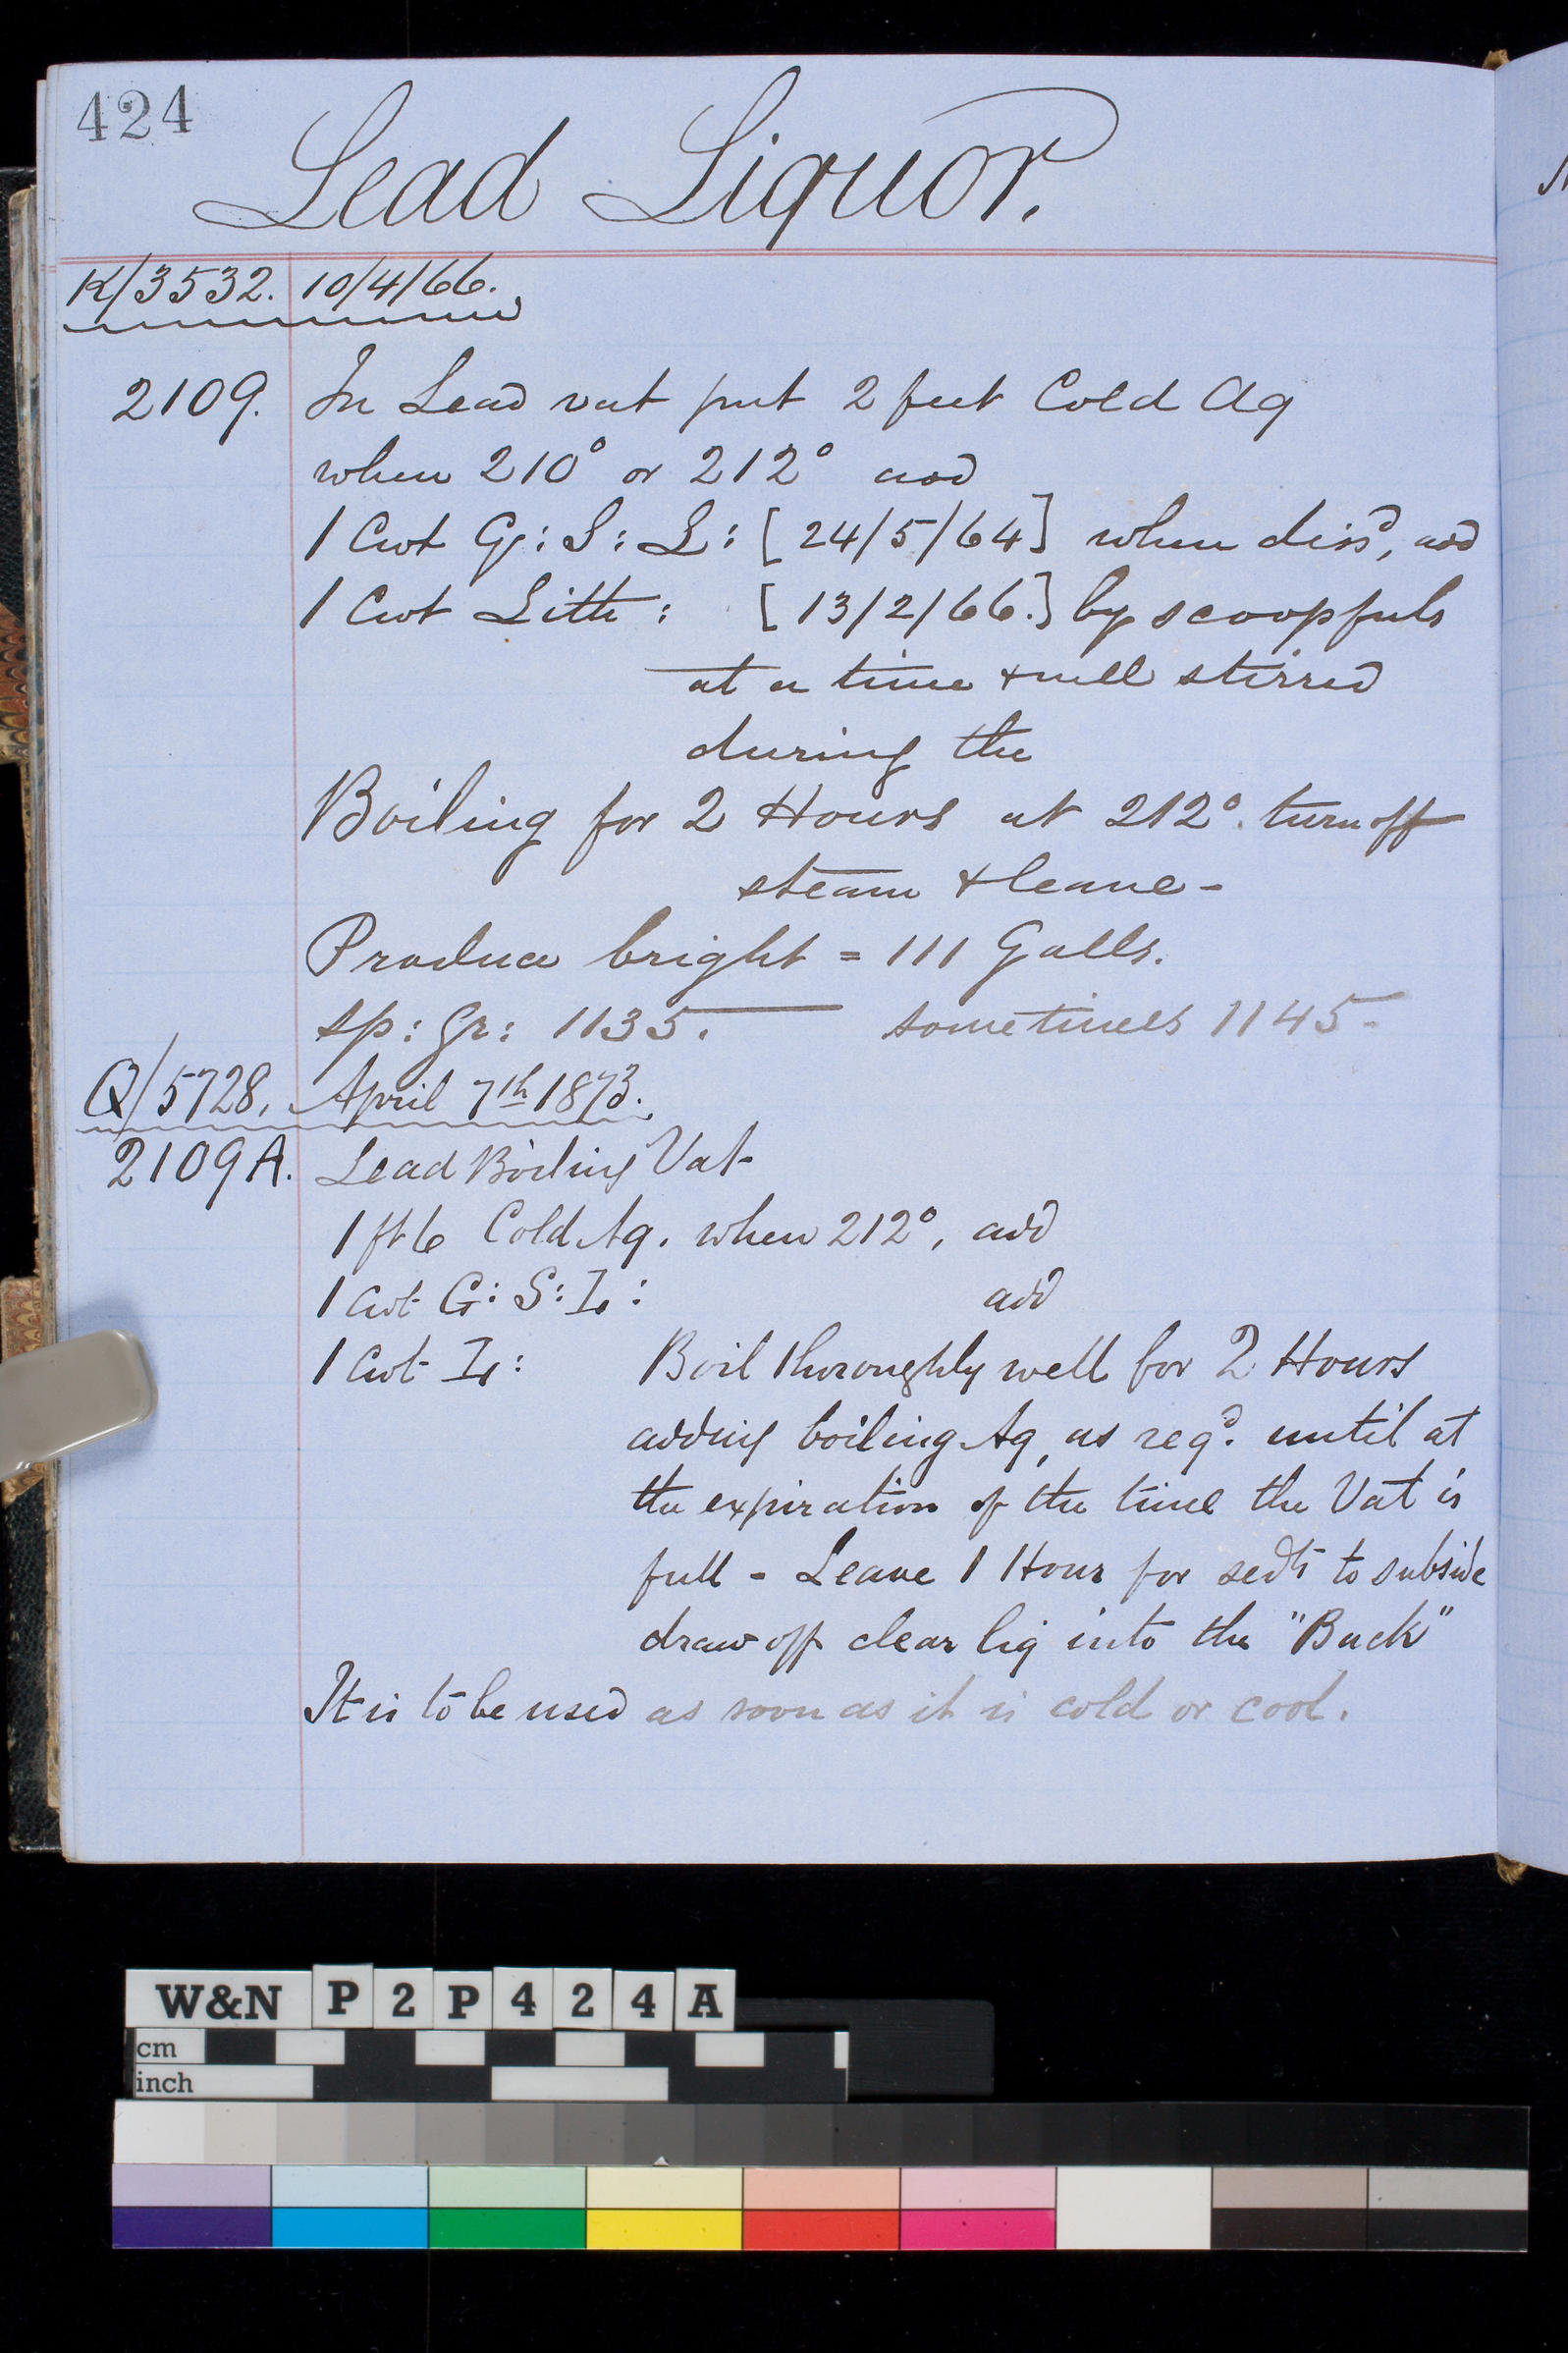 424
Lead Liquor.
K/3532. 10/4/66.
2109. In Lead vat put 2 feet Cold Aq
when 210° or 212° add
1 Cwt G: S: L: [24/5/64] when diss^d, add
1 Cwt Lith: [13/2/66.] by scoopfuls
at a time & well stirred
during the
Boiling for 2 Hours at 212°. turn off
steam & leave -
Produce bright = 111 Galls.
sp: gr: 1135. sometimes 1145-
Q/5728. April 7th 1873.
2109A. Lead Boiling Vat
1 ft 6 Cold Aq. when 212°, add
1 Cwt G: S: L: add
1 Cwt L: Boil thoroughly well for 2 Hours
adding boiling Aq, as req^d. until at
the expiration of the time the Vat is
full - Leave 1 Hour for sed^t to subside
draw off clear liq into the "Back"
It is to be used as soon as it is cold or cool.
W&N P2P424A
cm
inch